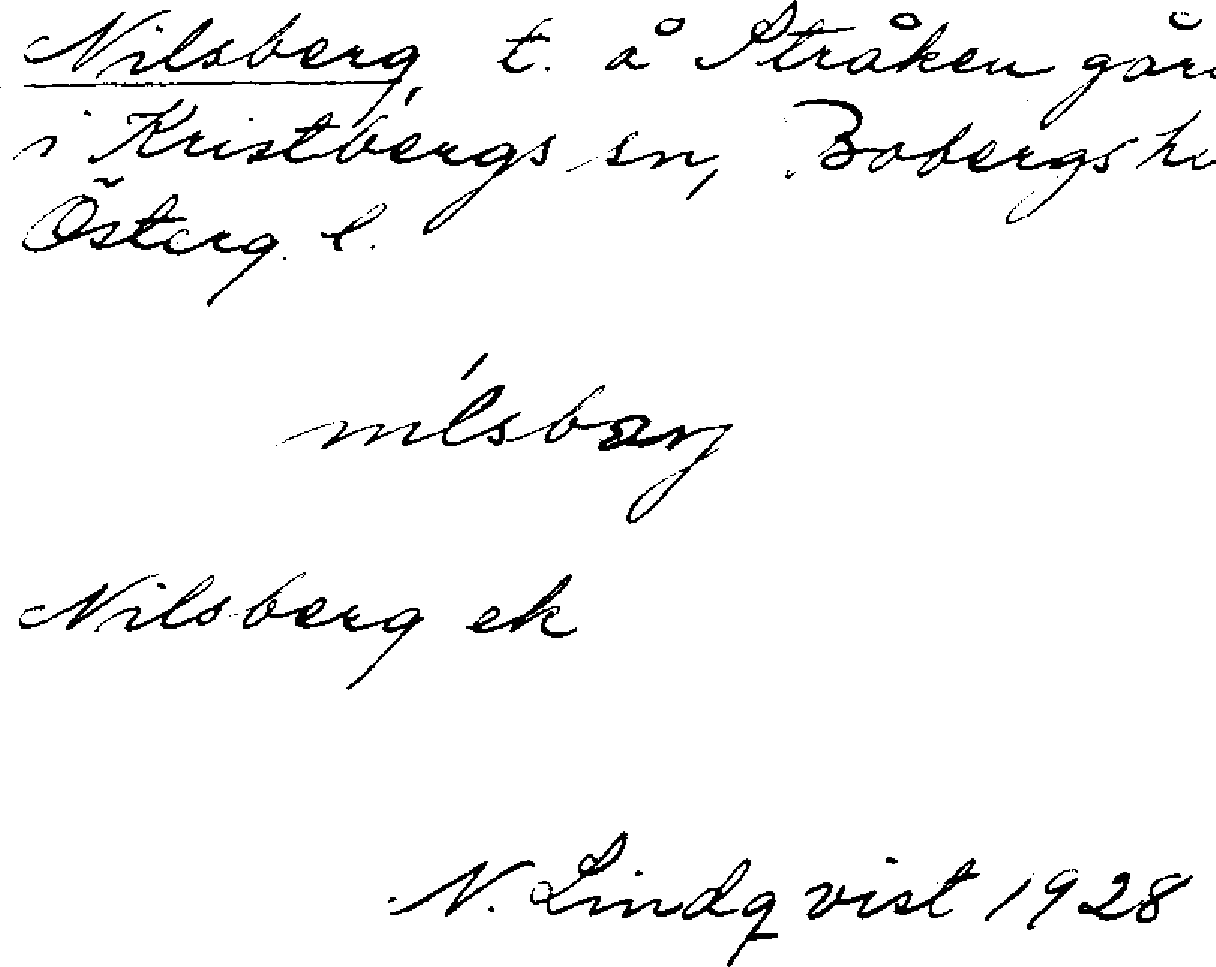 Nilsberg, t. å Stråken går
i Kristbergs sn, Bobergs h
Österg. l.
nilsbærj
Nilsberg ek
N. Lindqvist 1928